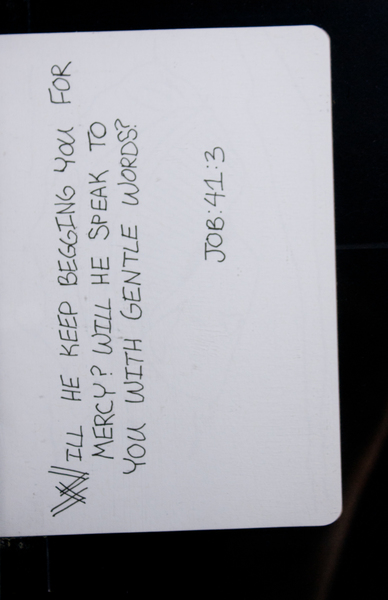 WILL HE KEEP BEGGING YOU FOR
MERCY? WILL HE SPEAK TO
YOU WITH GENTLE WORDS?
JOB:41:3